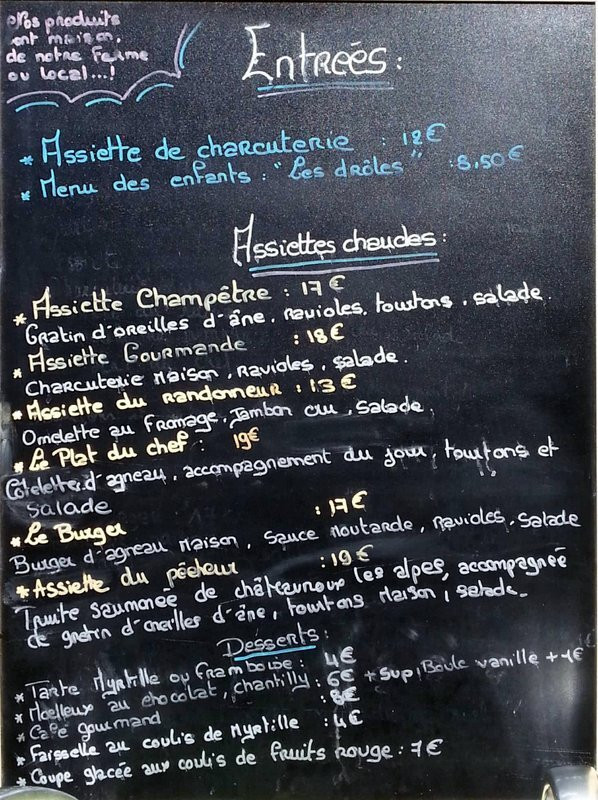 Nos produits
ont maison,
de notre Ferme
ou local...!
Entrées :
* Assiette de charcuterie : 12€
* Menu des enfants : "Les drôles" : 8.50€
Assiettes chaudes :
* Assiette Champêtre : 17€
Gratin d'oreilles d'âne, ravioles, tourtons, salade.
* Assiette Gourmande : 18€
Charcuterie Maison, Ravioles, salade.
* Assiette du randonneur : 13€
Omelette au fromage, Jambon cru, Salade,
* Le Plat du chef : 19€
Côtelette d'agneau, accompagnement du jour, tourtons et
salade
* Le Burger : 17€
Burger d'agneau Maison, sauce Moutarde, Ravioles, Salade
* Assiette du pêcheur : 19€
Truite saumonée de châteauroux les alpes, accompagnée
de gratin d'oreilles d'âne, tourtons Maison, salade.
Desserts :
* Tarte Myrtille ou Framboise : 4€
* Moelleux au chocolat, chantilly : 6€ + Sup, Boule vanille + 1€
* Café gourmand : 8€
* Faisselle au coulis de Myrtille : 4€
* Coupe glacée aux coulis de fruits rouge : 7€